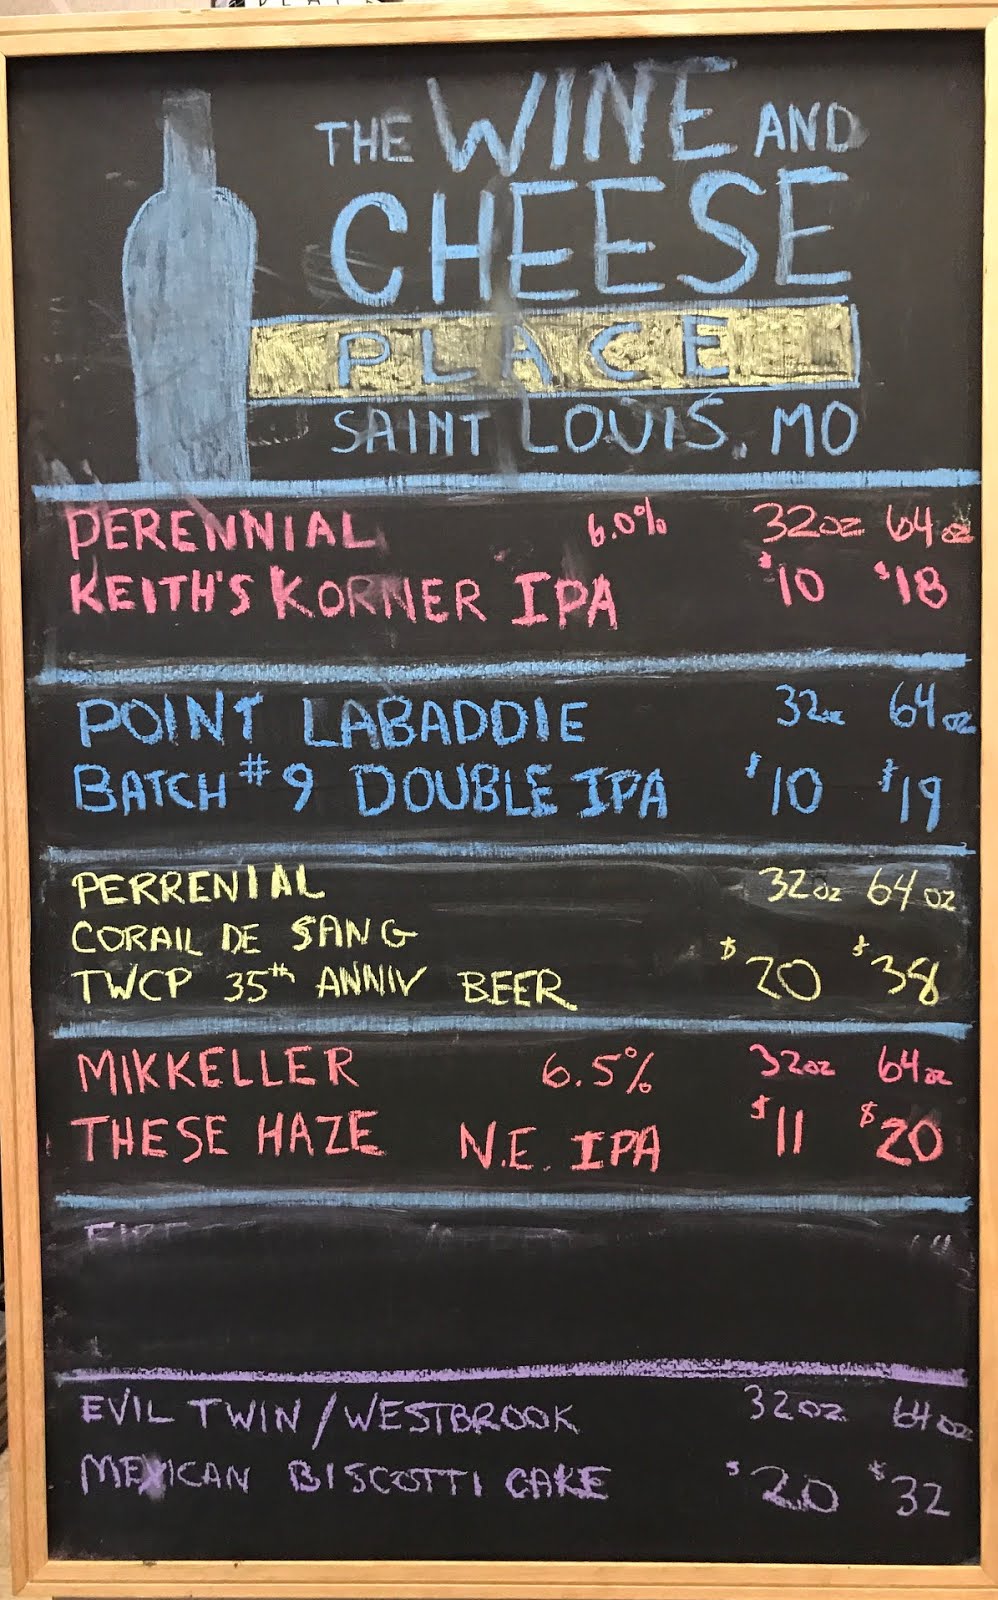 THE WINE AND
CHEESE
PLACE
SAINT LOUIS, MO
PERENNIAL 6.0% 32oz 64oz
KEITH'S KORNER IPA $10 $18
POINT LABADDIE 32oz 64oz
BATCH #9 DOUBLE IPA $10 $19
PERRENIAL 32oz 64oz
CORAIL DE SANG
TWCP 35th ANNIV BEER $20 $38
MIKKELLER 6.5% 32oz 64oz
THESE HAZE N.E. IPA $11 $20
EVIL TWIN/WESTBROOK 32oz 64oz
MEXICAN BISCOTTI CAKE $20 $32